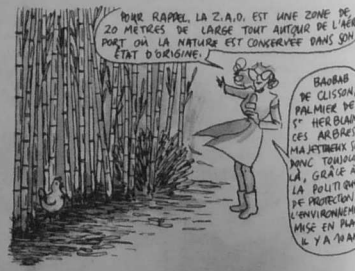 POUR RAPPEL, LA Z.A.D. EST UNE ZONE DE
20 MÈTRES DE LARGE TOUT AUTOUR DE L'AÉ
PORT OÙ LA NATURE EST CONSERVÉE DANS SON
ÉTAT D'ORIGINE.
BAOBAB
DE CLISSON,
PALMIER DE
St HERBLAIN
CES ARBRES
MAJESTUEUX S
DONC TOUJOU
LÀ, GRÂCE À
LA POLITIQU
DE PROTECTION
L'ENVIRONNEME
MISE EN PLA
IL Y A 10 AN